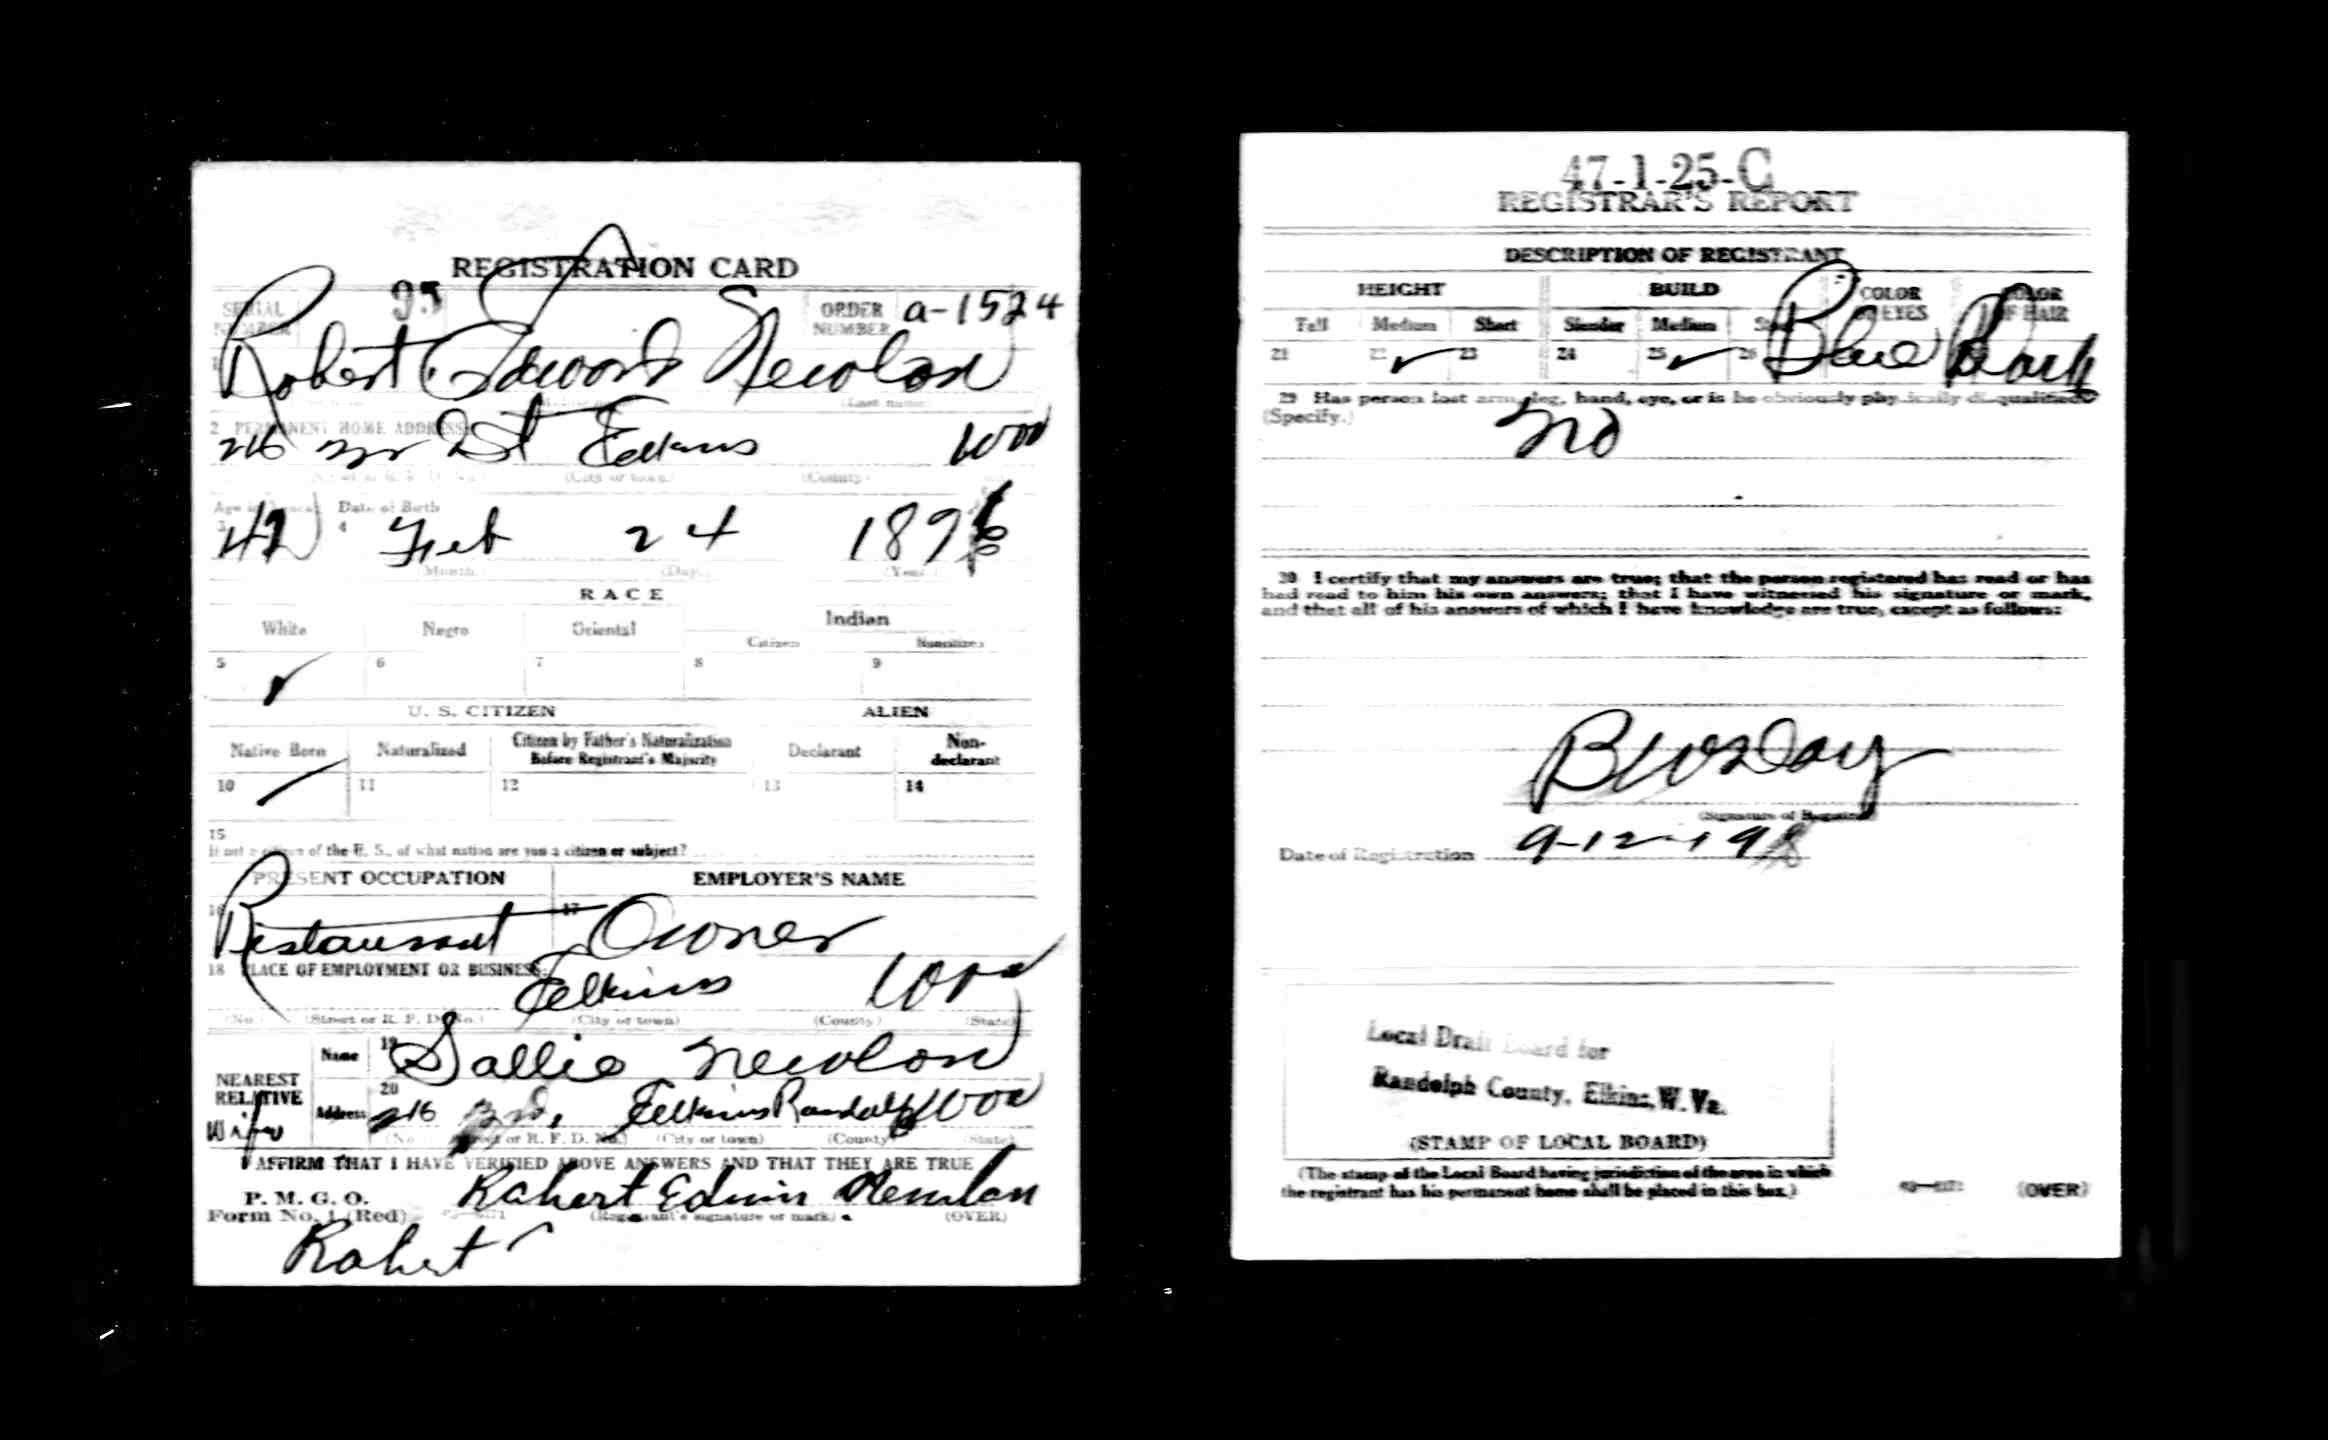 REGISTRATION CARD
SERIAL NUMBER 95 ORDER NUMBER a-1524
1 Robert Edward Newlon
(Last name)
2 PERMANENT HOME ADDRESS
216 3rd St Elkins W Va
(City or town) (County)
Age in years Date of Birth
3 42 4 Feb 24 1876
(Month) (Day) (Year)
RACE
White Negro Oriental Indian
Citizen Noncitizen
5 ✓ 6 7 8 9
U. S. CITIZEN ALIEN
Native Born Naturalized Citizen by Father's Naturalization Before Registrant's Majority Declarant Non-declarant
10 ✓ 11 12 13 14
15
If not a citizen of the U. S., of what nation are you a citizen or subject?
PRESENT OCCUPATION EMPLOYER'S NAME
16 Restaurant 17 Owner
18 PLACE OF EMPLOYMENT OR BUSINESS:
Elkins W Va
(No.) (Street or R. F. D. No.) (City or town) (County) (State)
NEAREST RELATIVE Name 19 Sallie Newlon
Wife Address 20 216 3rd, Elkins Randolph W Va
(No.) (Street or R. F. D. No.) (City or town) (County) (State)
I AFFIRM THAT I HAVE VERIFIED ABOVE ANSWERS AND THAT THEY ARE TRUE
P. M. G. O.
Form No. 1 (Red) Robert Edwin Newlon
(Registrant's signature or mark) (OVER)
Robert
47-1-25-C
REGISTRAR'S REPORT
DESCRIPTION OF REGISTRANT
HEIGHT BUILD COLOR OF EYES COLOR OF HAIR
Tall Medium Short Slender Medium Stout
21 22 ✓ 23 24 25 ✓ 26 Blue Dark
29 Has person lost arm, leg, hand, eye, or is he obviously physically disqualified?
(Specify.) No
30 I certify that my answers are true; that the person registered has read or has
had read to him his own answers; that I have witnessed his signature or mark,
and that all of his answers of which I have knowledge are true, except as follows:
(Signature of Registrar)
Date of Registration 9-12-1918
Local Draft Board for
Randolph County, Elkins, W. Va.
(STAMP OF LOCAL BOARD)
(The stamp of the Local Board having jurisdiction of the area in which
the registrant has his permanent home shall be placed in this box.)
(OVER)